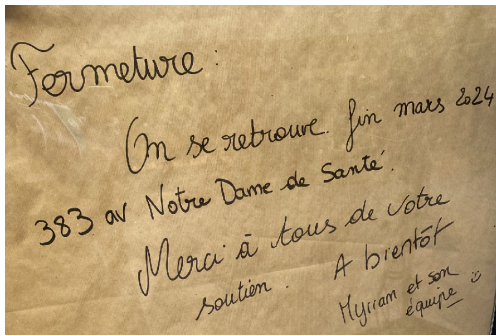 Fermeture :
On se retrouve fin mars 2024
383 av Notre Dame de Santé.
Merci à tous de votre
soutien. A bientôt
Myriam et son
équipe :)